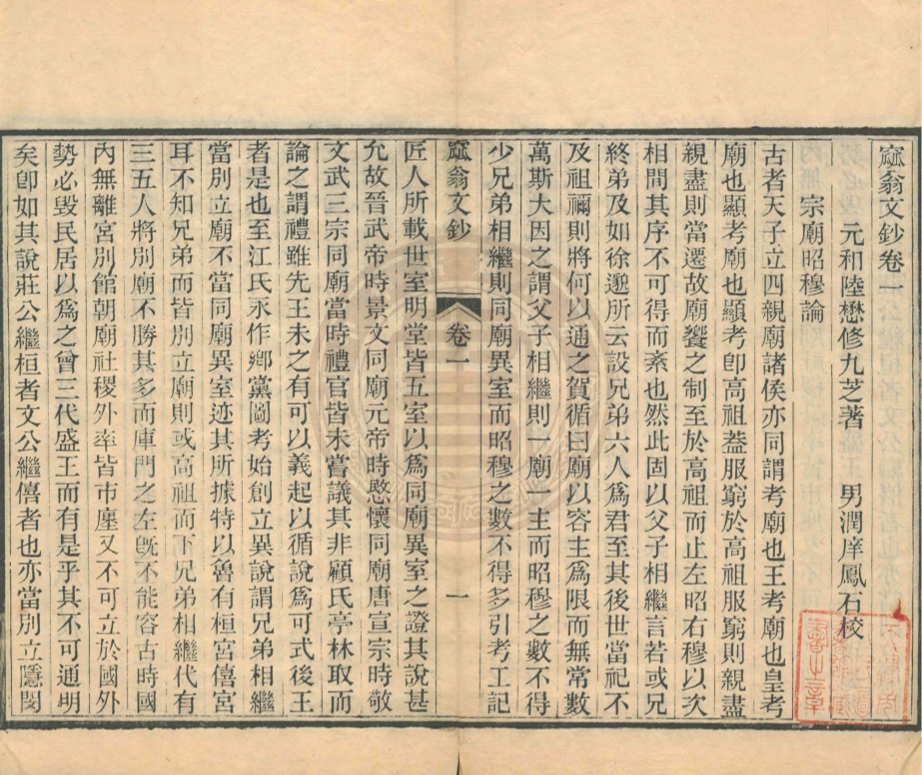 窳翁文鈔卷一
元和陸懋修九芝著　男潤庠鳳石校
宗廟昭穆論
古者天子立四親廟諸侯亦同謂考廟也王考廟也皇考
廟也顯考廟也顯考卽高祖葢服窮於高祖服窮則親盡
親盡則當遷故廟饗之制至於高祖而止左昭右穆以次
相間其序不可得而紊也然此固以父子相繼言若或兄
終弟及如徐邈所云設兄弟六人爲君至其後世當祀不
及祖禰則將何以通之賀循曰廟以容主爲限而無常數
萬斯大因之謂父子相繼則一廟一主而昭穆之數不得
少兄弟相繼則同廟異室而昭穆之數不得多引考工記
窳翁文鈔　卷一　一
匠人所載世室明堂皆五室以爲同廟異室之證其說甚
允故晉武帝時景文同廟元帝時愍懷同廟唐宣宗時敬
文武三宗同廟當時禮官皆未嘗議其非顧氏亭林取而
論之謂禮雖先王未之有可以義起以循說爲可式後王
者是也至江氏永作鄕黨圖考始創立異說謂兄弟相繼
當別立廟不當同廟異室迹其所據特以魯有桓宮僖宮
耳不知兄弟而皆別立廟則或高祖而下兄弟相繼代有
三五人將別廟不勝其多而庫門之左旣不能容古時國
內無離宮別館朝廟社稷外率皆市廛又不可立於國外
勢必毀民居以爲之曾三代盛王而有是乎其不可通明
矣卽如其說莊公繼桓者文公繼僖者也亦當別立隱閔